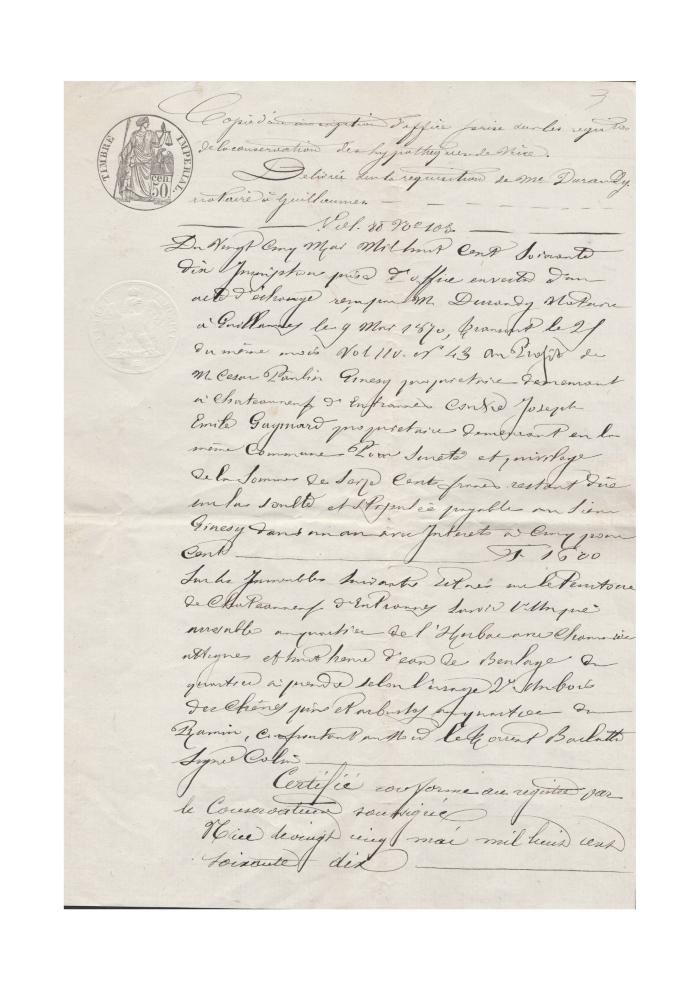 3
TIMBRE IMPÉRIAL
cen. 50
Copie d'une inscription d'office prise sur les registres
de la conservation des hypothèques de Nice.
Délivrée sur la réquisition de Me Durandy,
notaire à Guillaumes
Vol. No 108
Du Vingt Cinq Mai Mil huit Cent Soixante
dix Inscription prise d'office en vertu d'un
acte d'échange reçu par M. Durandy Notaire
à Guillaumes le 9 Mai 1870, transcrit le 25
du même mois Vol 110. No 43 au Profit de
M. Cesar Paulin Ginesy propriétaire demeurant
à Chateauneuf d'Entraunes Contre Joseph
Emile Gaymard propriétaire demeurant en la
même Commune Pour Sureté et privilège
de la Somme de Seize Cent francs restant due
sur la soulte et stipulée payable au Sieur
Ginesy dans un an avec Intérêts à Cinq pour
Cent F. 1600
Sur les Immeubles suivants situés sur le Territoire
de Chateauneuf d'Entraunes Savoir 1° Un pré
arrosable au quartier de l'
attignes et huit heures d'eau de du
quartier à prendre selon l'usage 2° Un bois
de Chênes pins et arbustes au quartier du
Ramin, confrontant au Nord le torrent Barlatte
Signé Colin
Certifié conforme au registre par
le Conservateur soussigné
Nice le vingt cinq mai mil huit cent
soixante dix